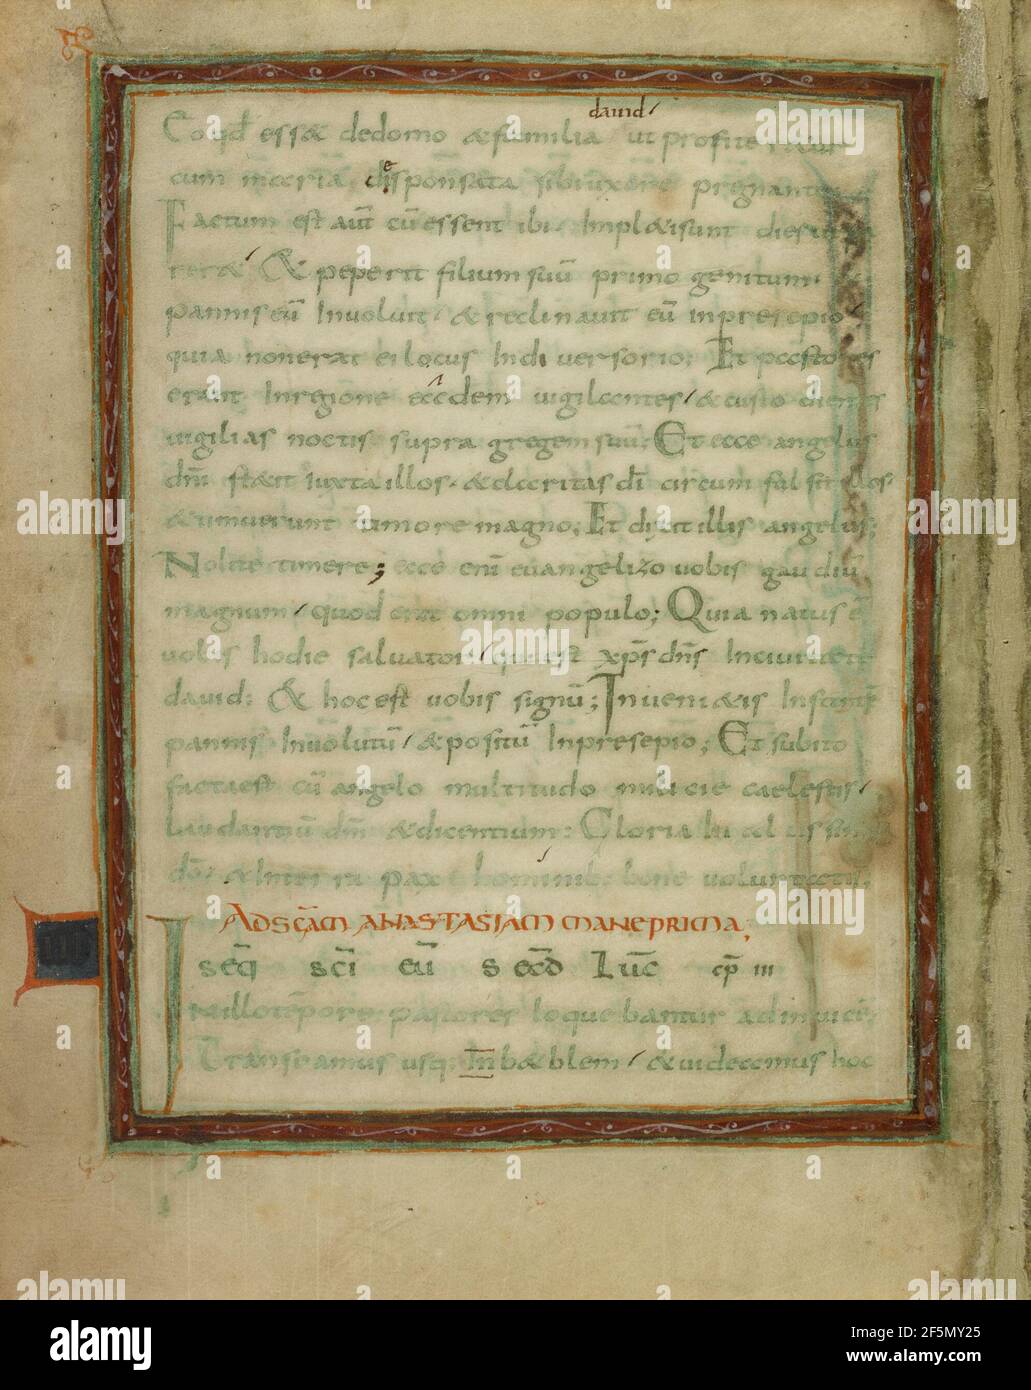 david
Eo qđ essæ dedomo & familia ut profiteretur
cum maria desponsata sibi uxore pregnante
Factum est aut cū essent ibi. Impl&i sunt dies ut pa
reræ & peperit filium suū primo genitum.
pannis eū Inuoluit. & reclinauit eū in presepio
quia non erat ei locus In diuersorio; Et pastores
erant In regione eadem uigilantes / & custodientes
uigilias noctis supra gregem suū; Et ecce angelus
dn̄i stetit iuxta illos. & claritas dī circum fulsit illos
& timuerunt timore magno; Et dixit illis angelus;
Nolite timere; ecce enī euangelizo uobis gaudiū
magnum / quod erit omni populo; Quia natus ē
uobis hodie saluator / qui est xp̄s dn̄s In ciuitate
dauid: & hoc est uobis signū; Inueni&is Infantē
pannis Inuolutū / & positū In presepio; Et subito
facta est cū angelo multitudo militie caelestis /
Laudantiū dm̄ & dicentium: Gloria In altissimis
dō. & In terra pax hominib; bone uoluntatis;
III
AD SC̄AM ANASTASIAM MANE PRIMA;
seq̄ sc̄i eū secđ Luc̄ cp̄ III
In illo tēpore; pastores loquebantur ad inuicē;
Transeamus usq; in bæblem / & uideamus hoc
alamy
Image ID: 2F5MY25
www.alamy.com